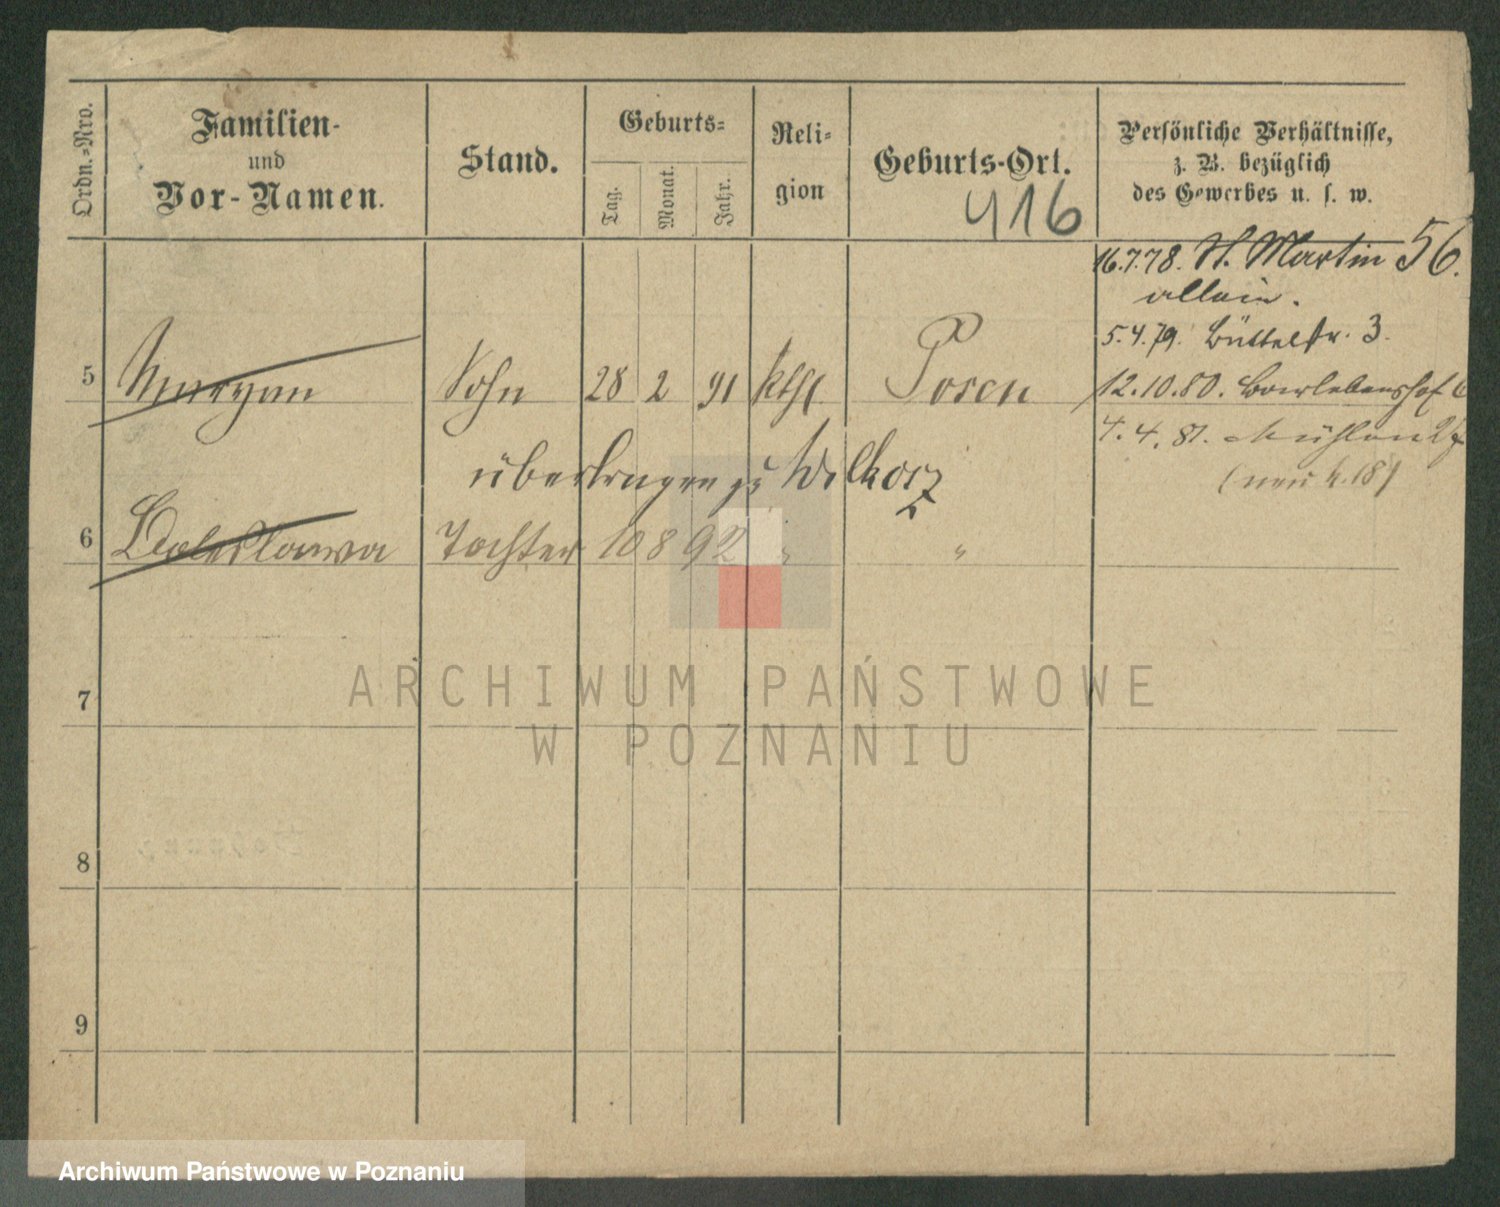 Ordn.-Nro.
Familien-
und
Vor-Namen.
Stand.
Geburts-
Tag.
Monat.
Jahr.
Reli-
gion
Geburts-Ort.
416
Persönliche Verhältnisse,
z. B. bezüglich
des Gewerbes u. s. w.
16.7.78. St. Martin 56.
allein.
5.4.79. Büttelstr. 3.
5 Maryan Sohn 28 2 91 kthl Posen
12.10.80.
4.4.81. Mühlen
(neu 18)
übertragen zu
6 Boleslawa Tochter 10 8 92 " "
7
8
9
ARCHIWUM PAŃSTWOWE
W POZNANIU
Archiwum Państwowe w Poznaniu